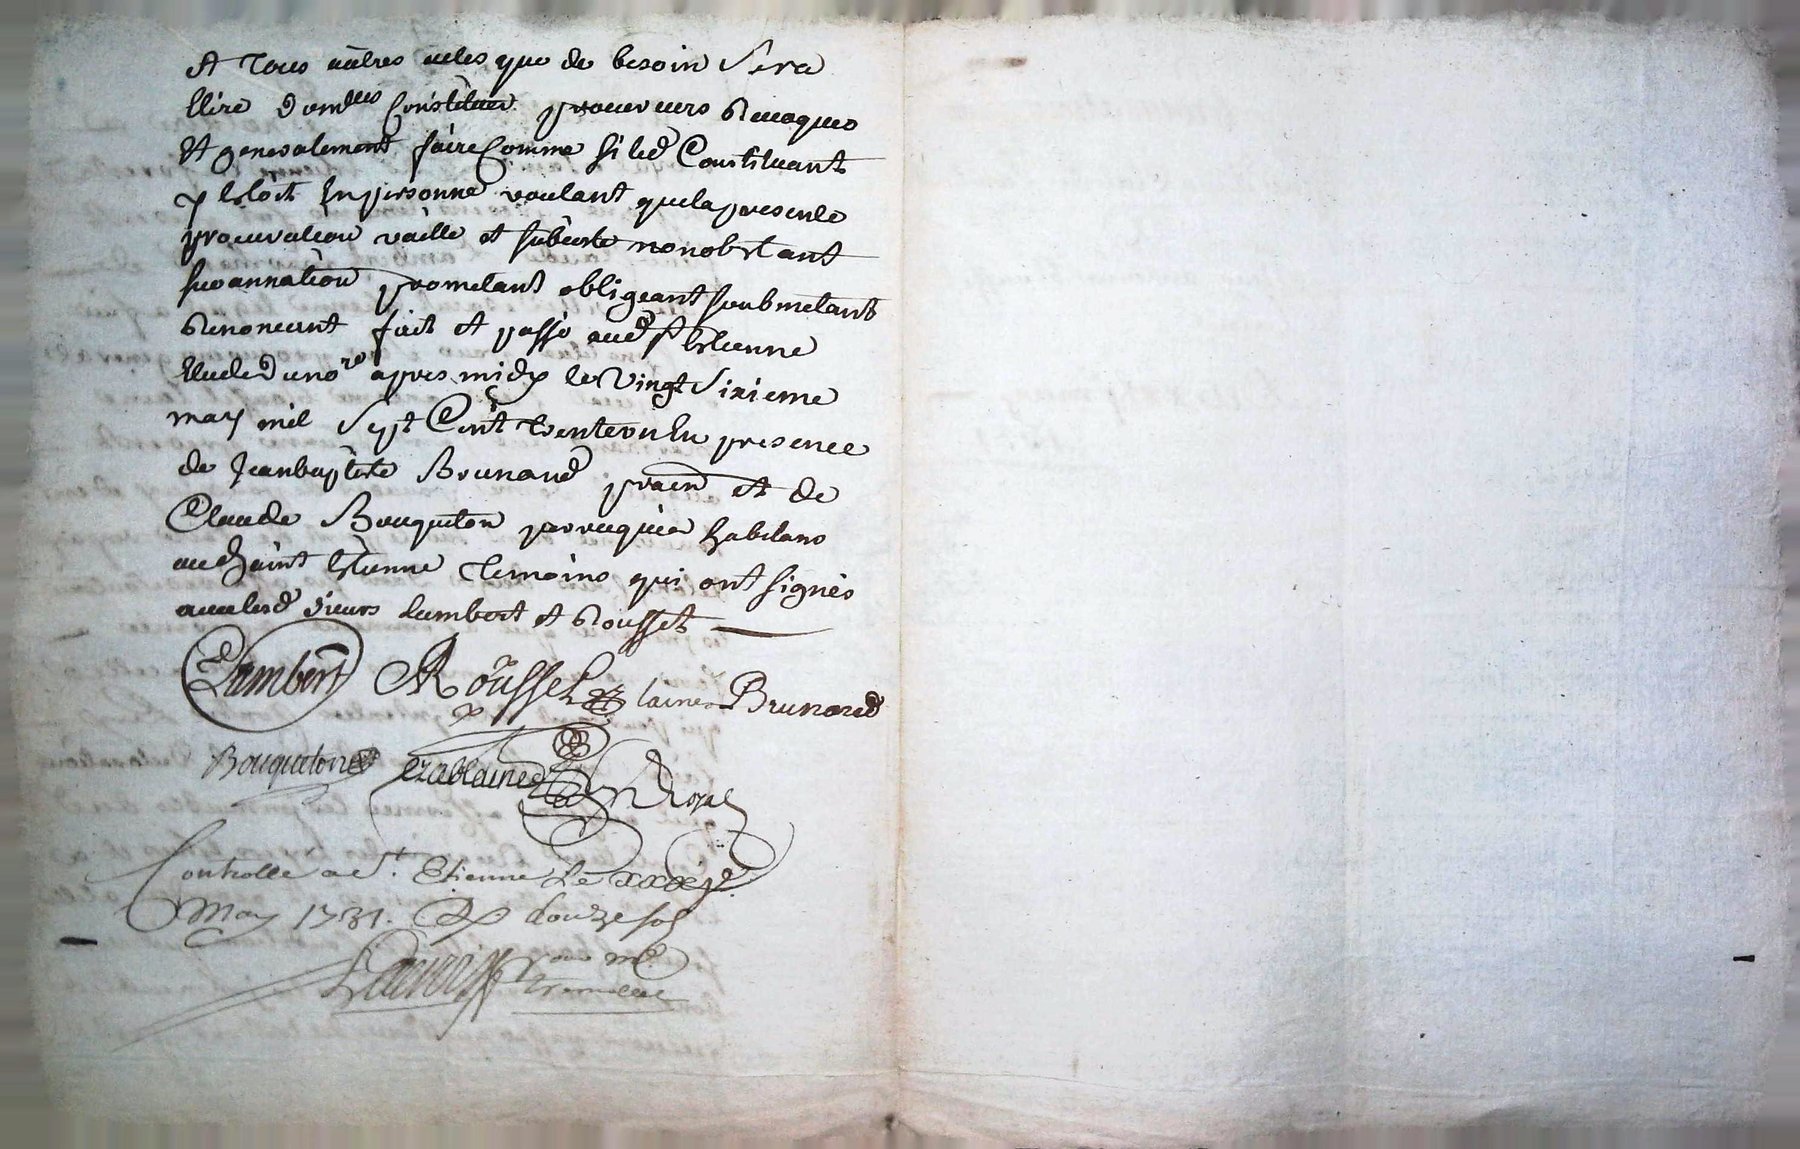 Et tous autres actes que de besoin Sera
Elire domlies Constituer procureurs Revoquer
Et generalement faire Comme si led Constituant
y Estoit En personne voulant que la presente
procuration vaille et subciste nonobstant
surannation prometant obligeant soubmetant
Renoncant fait et passé aud St Estienne
Etude du no.re apres midy le Vingt Sixieme
may mil Sept Cent trente un En presence
de Jean baptiste Brunand prain et de
Claude Bouqueton perruquier habitans
aud Saint Estienne temoins qui ont signés
avec lesd sieurs Lambert et Rousset
Lambert Rousset laine Brunand
Bouqueton Royal
Controlle a St. Etienne Le
May 1731. R douze sol
pour Mr.